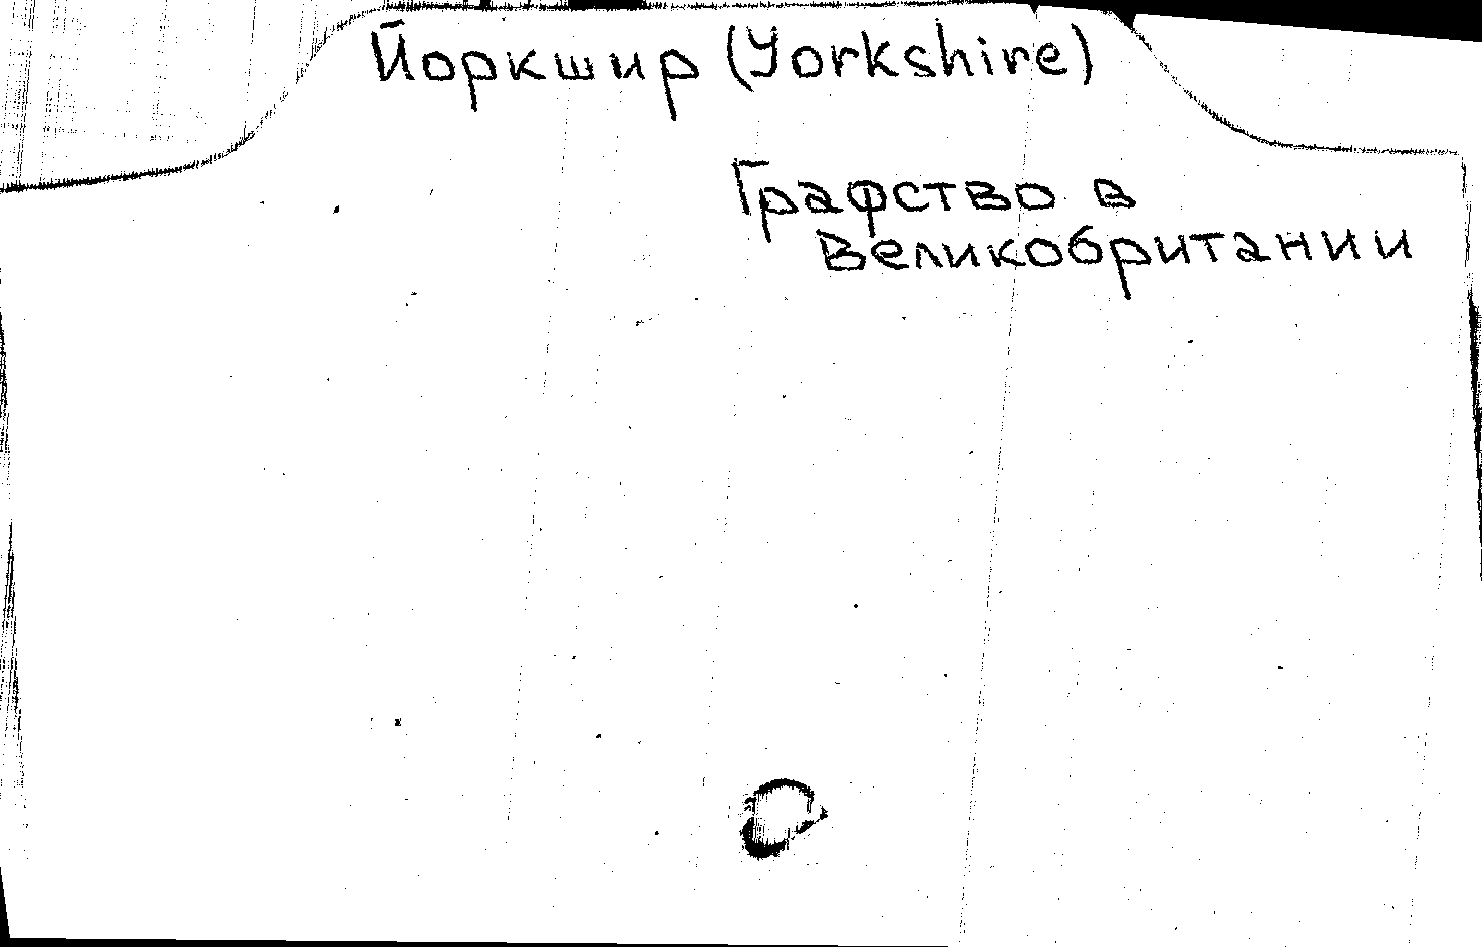 Йоркшир (Yorkshire)
Графство в
Великобритании